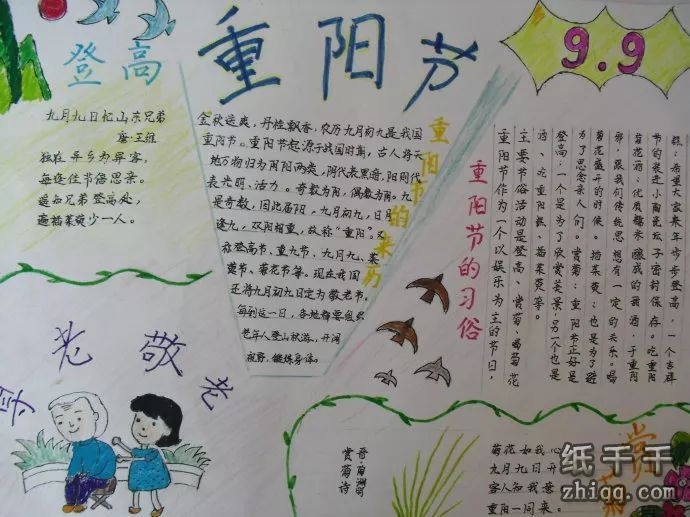 重阳节
9.9
登高
九月九日忆山东兄弟
唐·王维
独在异乡为异客，
每逢佳节倍思亲。
遥知兄弟登高处，
遍插茱萸少一人。
重阳节的来历
金秋送爽，丹桂飘香，农历九月初九是我国
重阳节。重阳节起源于战国时期，古人将天
地万物归为阴阳两类，阴代表黑暗，阳则代
表光明、活力。奇数为阳，偶数为阴。九
是奇数，因此届阳，九月初九，日月
逢九，双阳相重，故称“重阳”。又
称登高节、重九节、九月九、茱
萸节、菊花节等。现在我国
还将九月初九日定为敬老节。
每到这一日，各地都要组织
老年人登山秋游，开阔
视野，锻炼身体。
重阳节的习俗
重阳节作为一个以娱乐为主的节日，
主要节俗活动是登高、赏菊、喝菊花
酒、吃重阳糕、插茱萸等。
登高：一个是为了欣赏美景；另一个也是
为了思念亲人们。赏菊：重阳节正好是
菊花盛开的时候。插茱萸：也是为了避
邪，跟我们传统思想有一定的关系。喝
菊花酒：优质糯米酿成的甜酒，于重阳
节的装进小陶瓷坛子密封保存。吃重阳
糕：希望大家来年步步登高，一个吉祥
老敬老
赏菊
晋·陶渊明
赏菊诗
菊花如我心
九月九日开
客人知我意
重阳一同来。
纸千千
zhiqq.com